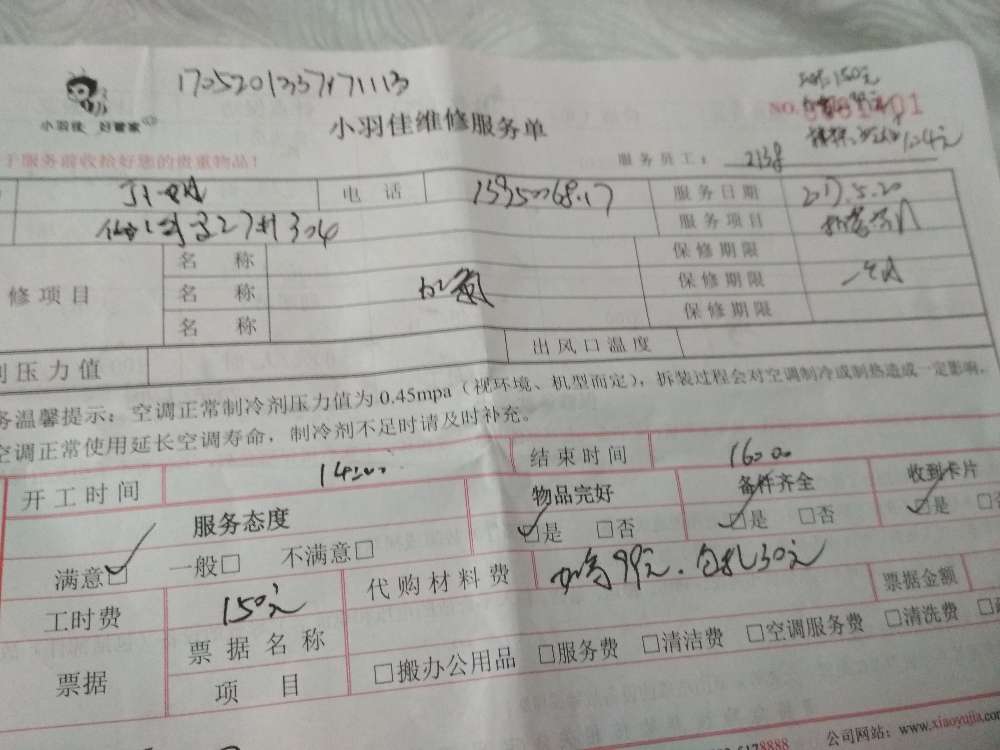 1705201337171113
小羽佳 好管家
小羽佳维修服务单
NO.
150元
124元
于服务前收拾好您的贵重物品！
服务员工： 2138
电 话
服务日期 2017.5.20
27#304
服务项目
名 称
保修期限
修项目
名 称
加氟
保修期限
名 称
保修期限
压力值
出风口温度
务温馨提示：空调正常制冷剂压力值为0.45mpa（视环境、机型而定），拆装过程会对空调制冷或制热造成一定影响，
空调正常使用延长空调寿命，制冷剂不足时请及时补充。
开工时间 14:00
结束时间 16:00
服务态度
物品完好
备件齐全
收到卡片
满意□ 一般□ 不满意□
□是 □否
□是 □否
□是
工时费 150元
代购材料费 加高99元、包扎30元
票据金额
票据
票据名称
□搬办公用品 □服务费 □清洁费 □空调服务费 □清洗费
项 目
8888
公司网站：www.xiaoyujia.com